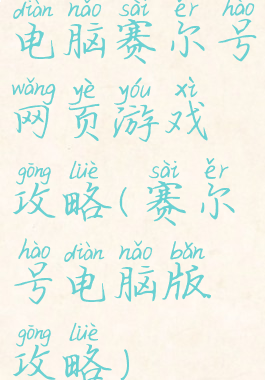 diàn nǎo sài ěr hào
电脑赛尔号
wǎng yè yóu xì
网页游戏
gōng lüè sài ěr
攻略(赛尔
hào diàn nǎo bǎn
号电脑版
gōng lüè
攻略)